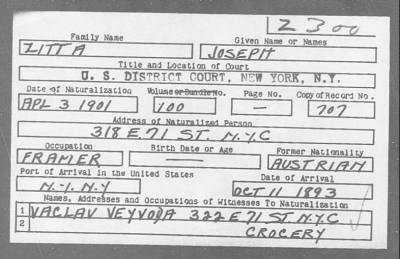 Z 300
Family Name Given Name or Names
ZITTA JOSEPH
Title and Location of Court
U. S. DISTRICT COURT, NEW YORK, N.Y.
Date of Naturalization Volume or Bundle No. Page No. Copy of Record No.
APL 3 1901 100 — 707
Address of Naturalized Person
318 E 71 ST. N.Y.C
Occupation Birth Date or Age Former Nationality
FRAMER — AUSTRIAN
Port of Arrival in the United States Date of Arrival
N.Y. N.Y OCT 11 1893
Names, Addresses and Occupations of Witnesses To Naturalization
1 VACLAV VEYVODA 322 E 71 ST N.Y.C
2 GROCERY